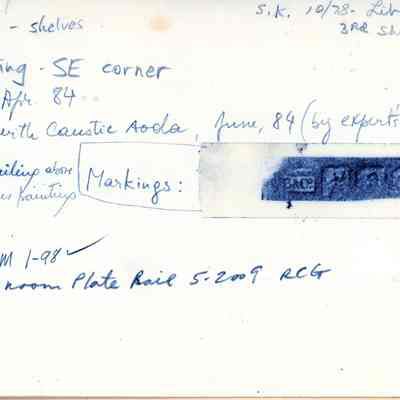 - shelves
S.K. 10/78- Lib
3RD Sh
ing - SE corner
Apr. 84
with Caustic Soda, June, 84 (by experts
eiling above
us painting
Markings:
M 1-98 ✓
room Plate Rail 5-2009 RCG